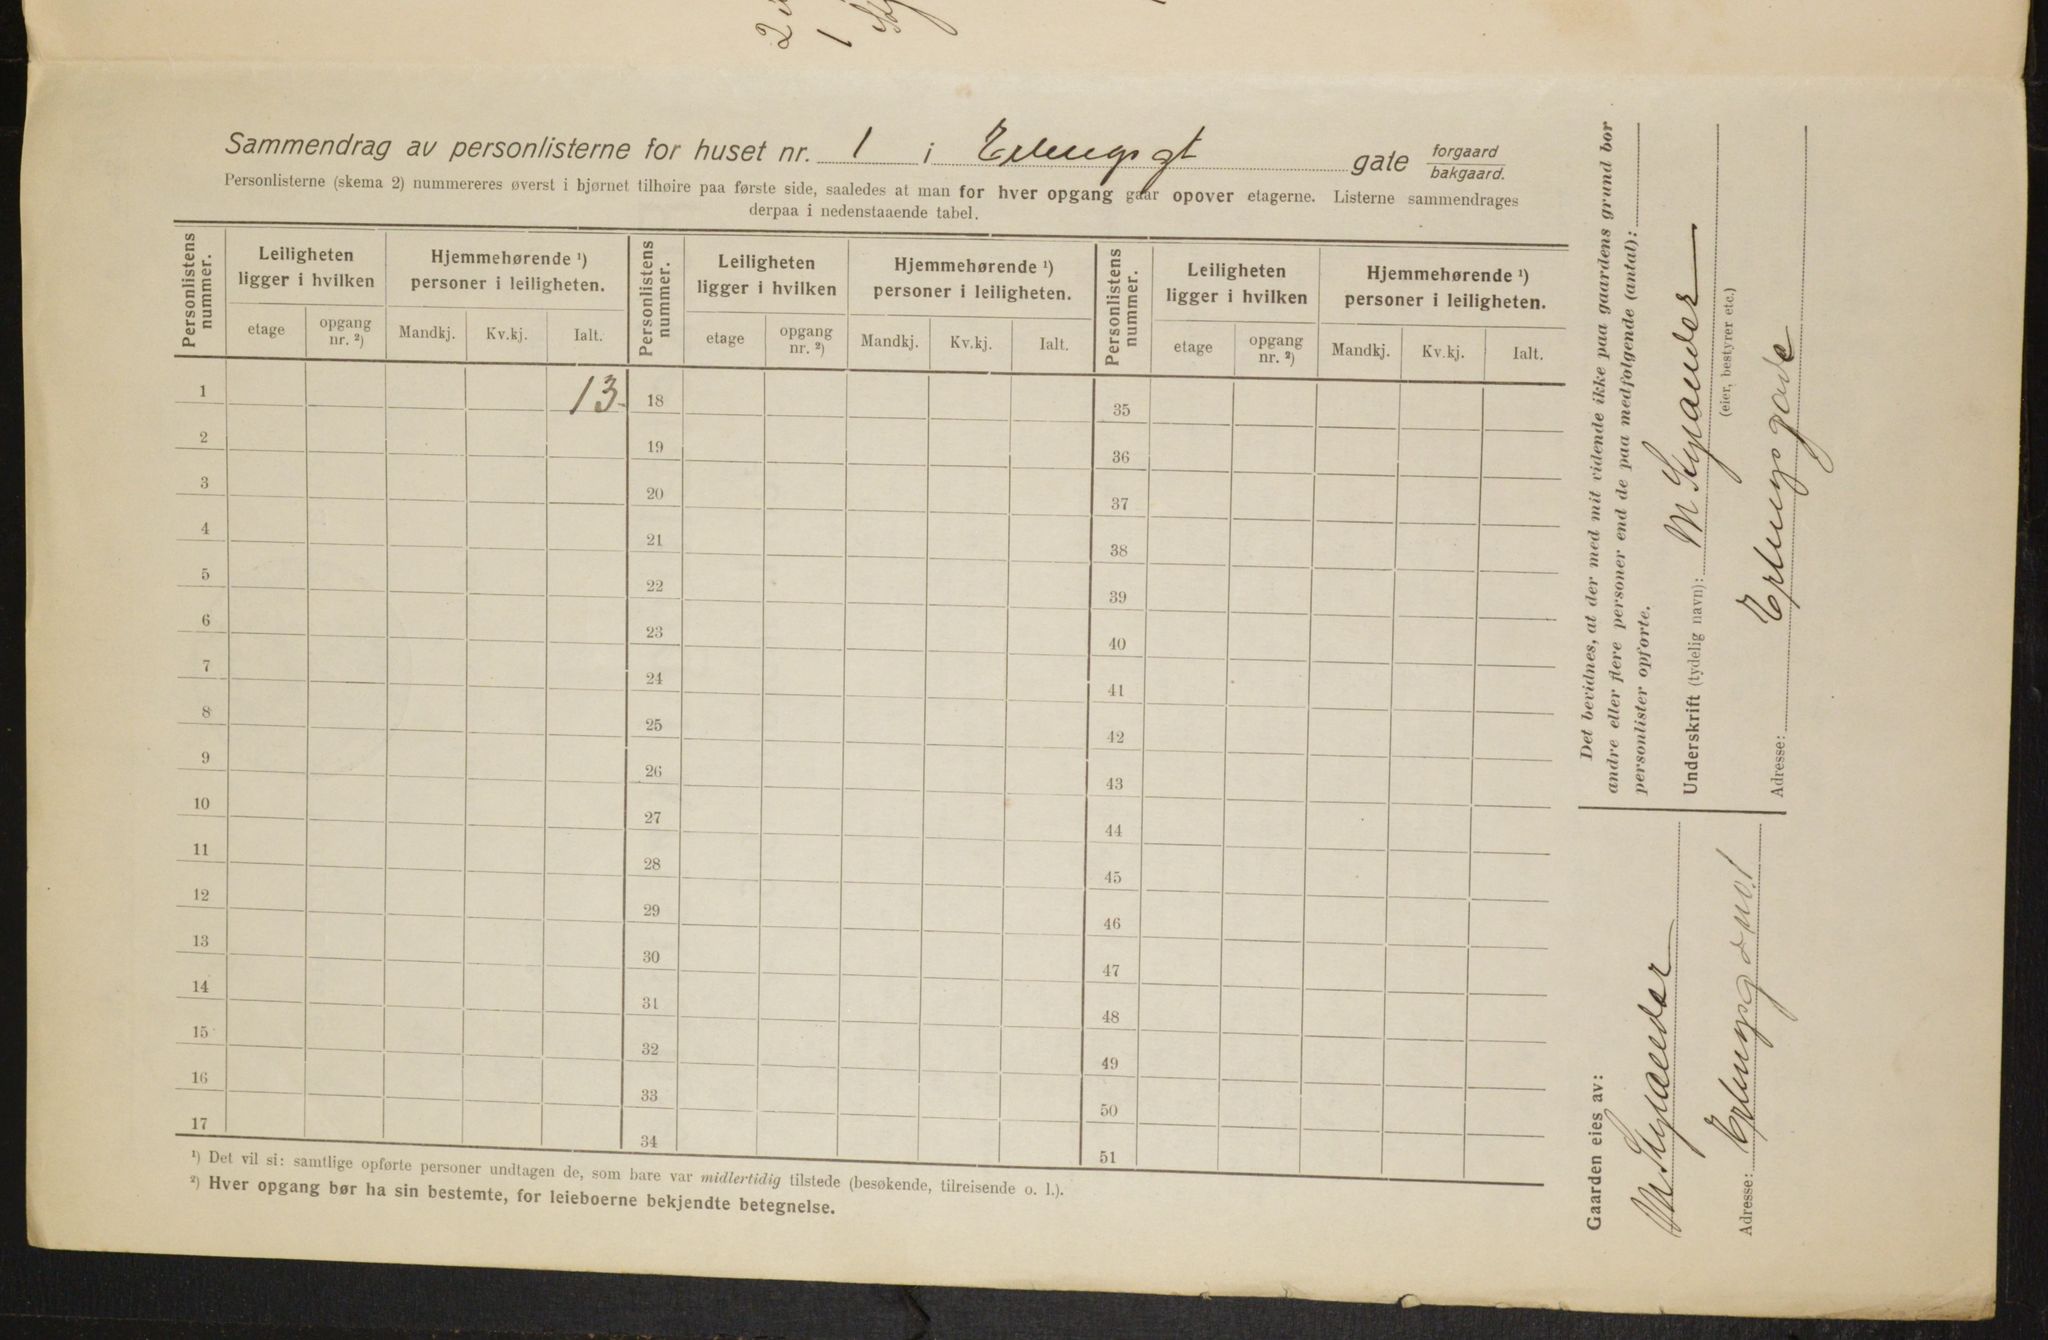 2
1
Sammendrag av personlisterne for huset nr. 1 i Erlingsgt gate forgaard
bakgaard.
Personlisterne (skema 2) nummereres øverst i bjørnet tilhøire paa første side, saaledes at man for hver opgang gaar opover etagerne. Listerne sammendrages
derpaa i nedenstaaende tabel.
Personlistens nummer. Leiligheten ligger i hvilken Hjemmehørende ¹) personer i leiligheten. Personlistens nummer. Leiligheten ligger i hvilken Hjemmehørende ¹) personer i leiligheten. Personlistens nummer. Leiligheten ligger i hvilken Hjemmehørende ¹) personer i leiligheten.
etage opgang nr. ²) Mandkj. Kv.kj. Ialt. etage opgang nr. ²) Mandkj. Kv.kj. Ialt. etage opgang nr. ²) Mandkj. Kv.kj. Ialt.
1 13 18 35
2 19 36
3 20 37
4 21 38
5 22 39
6 23 40
7 24 41
8 25 42
9 26 43
10 27 44
11 28 45
12 29 46
13 30 47
14 31 48
15 32 49
16 33 50
17 34 51
¹) Det vil si: samtlige opførte personer undtagen de, som bare var midlertidig tilstede (besøkende, tilreisende o. l.).
²) Hver opgang bør ha sin bestemte, for leieboerne bekjendte betegnelse.
Det bevidnes, at der med mit vidende ikke paa gaardens grund bor
andre eller flere personer end de paa medfølgende (antal):
personlister opførte.
Underskrift (tydelig navn): M
(eier, bestyrer etc.)
Adresse: Erlingsgade
Gaarden eies av:
M
Adresse: Erlingsg no. 1